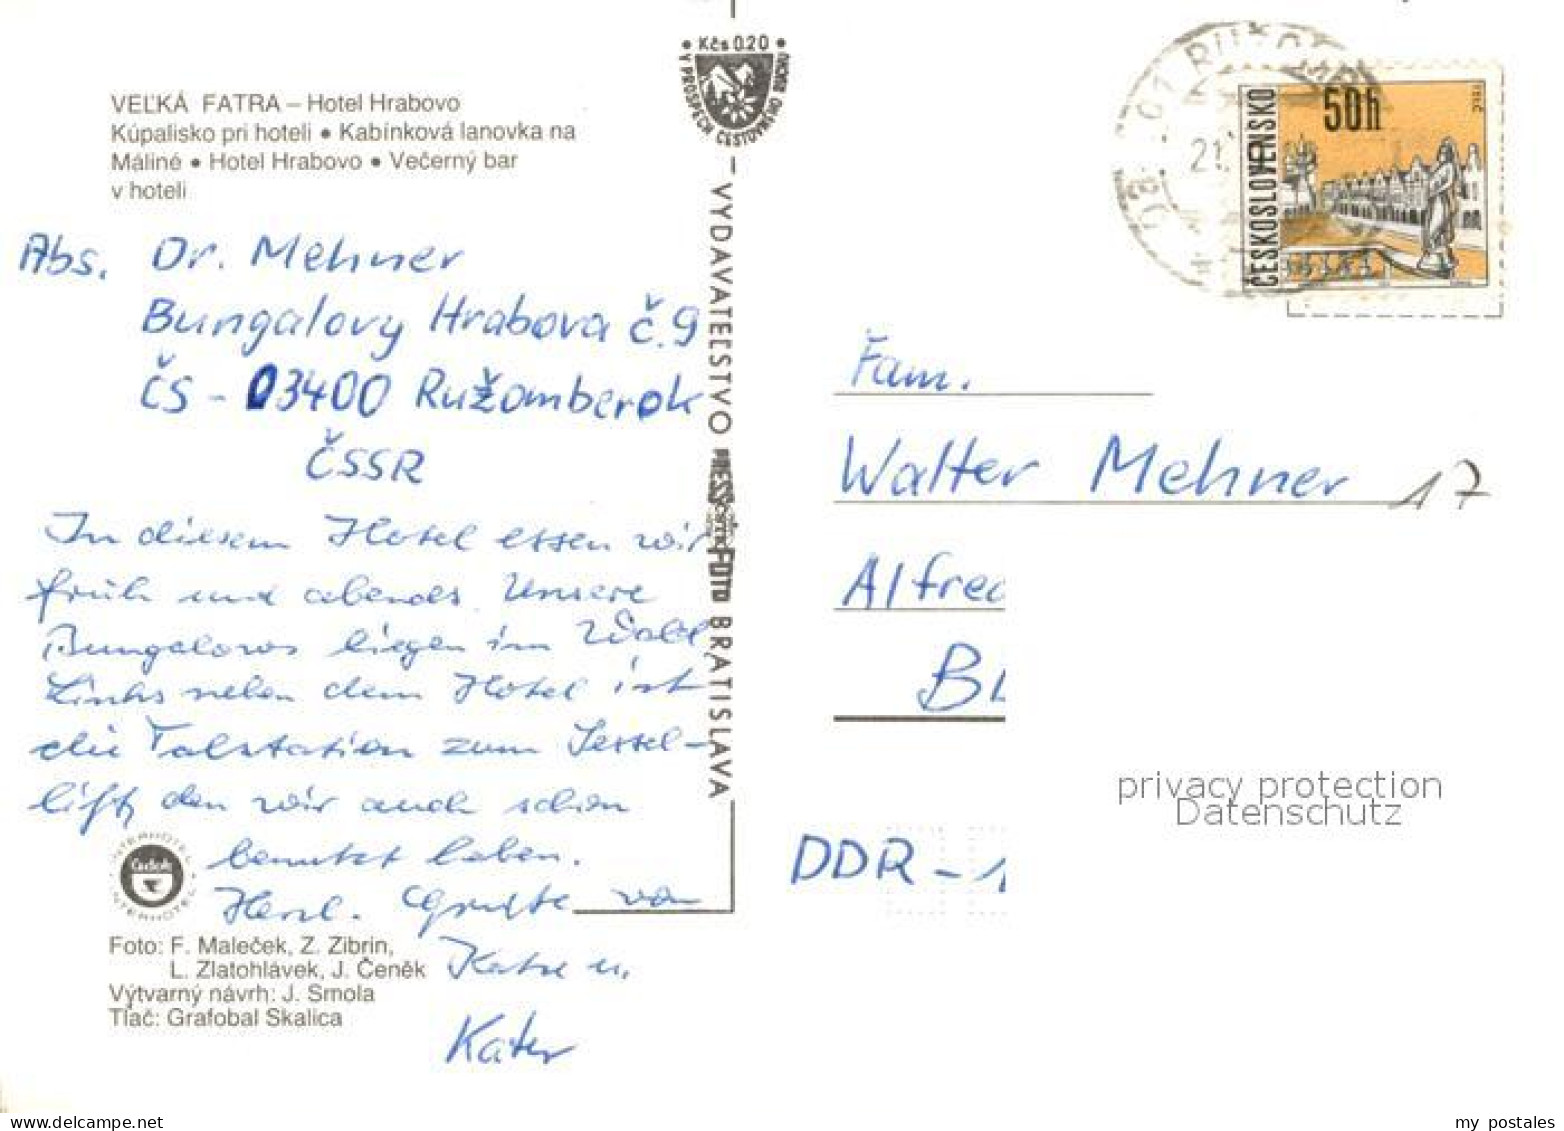 VEĽKÁ FATRA – Hotel Hrabovo
Kúpalisko pri hoteli • Kabínková lanovka na
Máliné • Hotel Hrabovo • Večerný bar
v hoteli
Abs. Dr. Mehner
Bungalovy Hrabova č. 9
ČS - 03400 Ružomberok
ČSSR
In diesem Hotel essen wir
früh und abends. Unsere
Bungalows liegen im Wald
Links neben dem Hotel ist
die Talstation zum Sessel-
lift, den wir auch schon
benutzt haben.
Herzl. Grüße von
Katze u.
Kater
INTERHOTEL
Čedok
INTERHOTEL
Foto: F. Maleček, Z. Zibrin,
L. Zlatohlávek, J. Čeněk
Výtvarný návrh: J. Smola
Tlač: Grafobal Skalica
• Kčs 0.20 •
V PROSPECH CESTOVNÉHO RUCHU
VYDAVATEĽSTVO PRESSFOTO BRATISLAVA
ČESKOSLOVENSKO
50h
TELČ
Fam.
Walter Mehner 17
Alfred
BL
DDR - 1
privacy protection
Datenschutz
my postales
www.delcampe.net